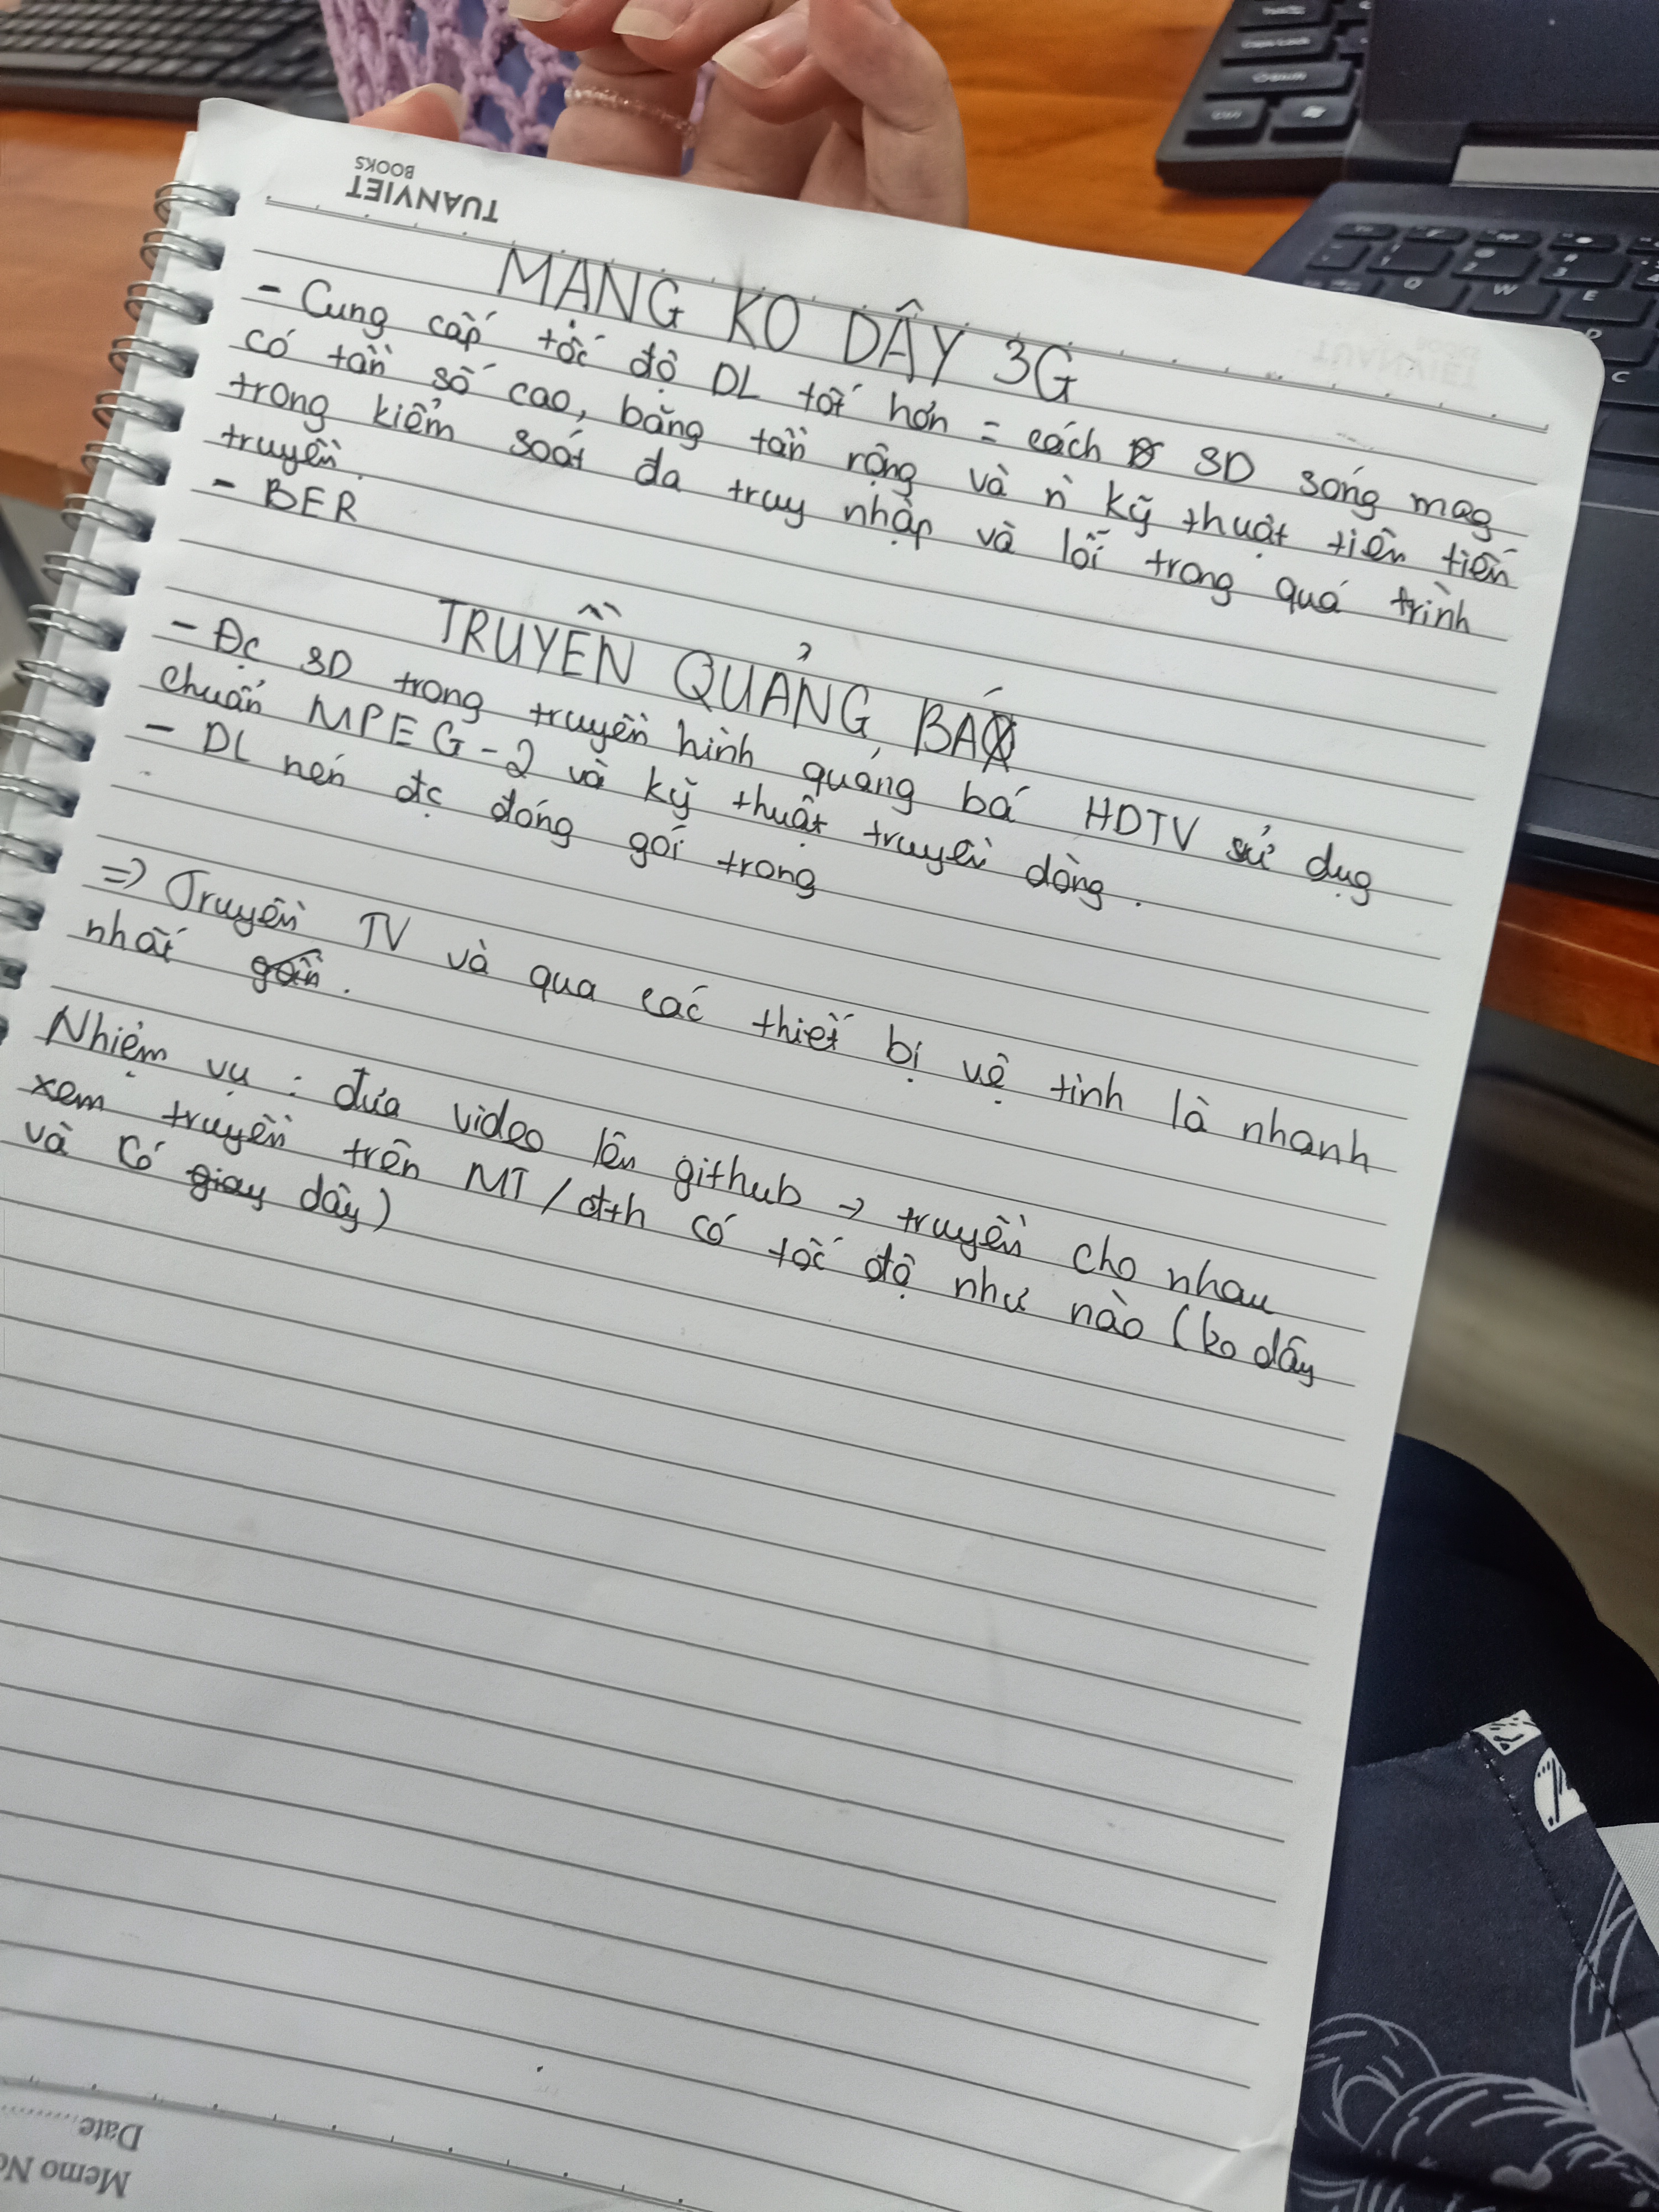 TUANVIET
BOOKS
MẠNG KO DÂY 3G
- Cung cấp tốc độ DL tốt hơn = cách SD sóng mag
có tần số cao, băng tần rộng và ǹ kỹ thuật tiên tiến
trong kiểm soát đa truy nhập và lỗi trong quá trình
truyền.
- BER
TRUYỀN QUẢNG BÁ
- Đc SD trong truyền hình quảng bá HDTV sử dụg
chuẩn MPEG-2 và kỹ thuật truyền dòng.
- DL nén đc đóng gói trong
=> Truyền TV và qua các thiết bị vệ tinh là nhanh
nhất gần.
Nhiệm vụ : đưa video lên github → truyền cho nhau
xem truyền trên MT/đth có tốc độ như nào (ko dây
và có giay dây)
Date
Memo No